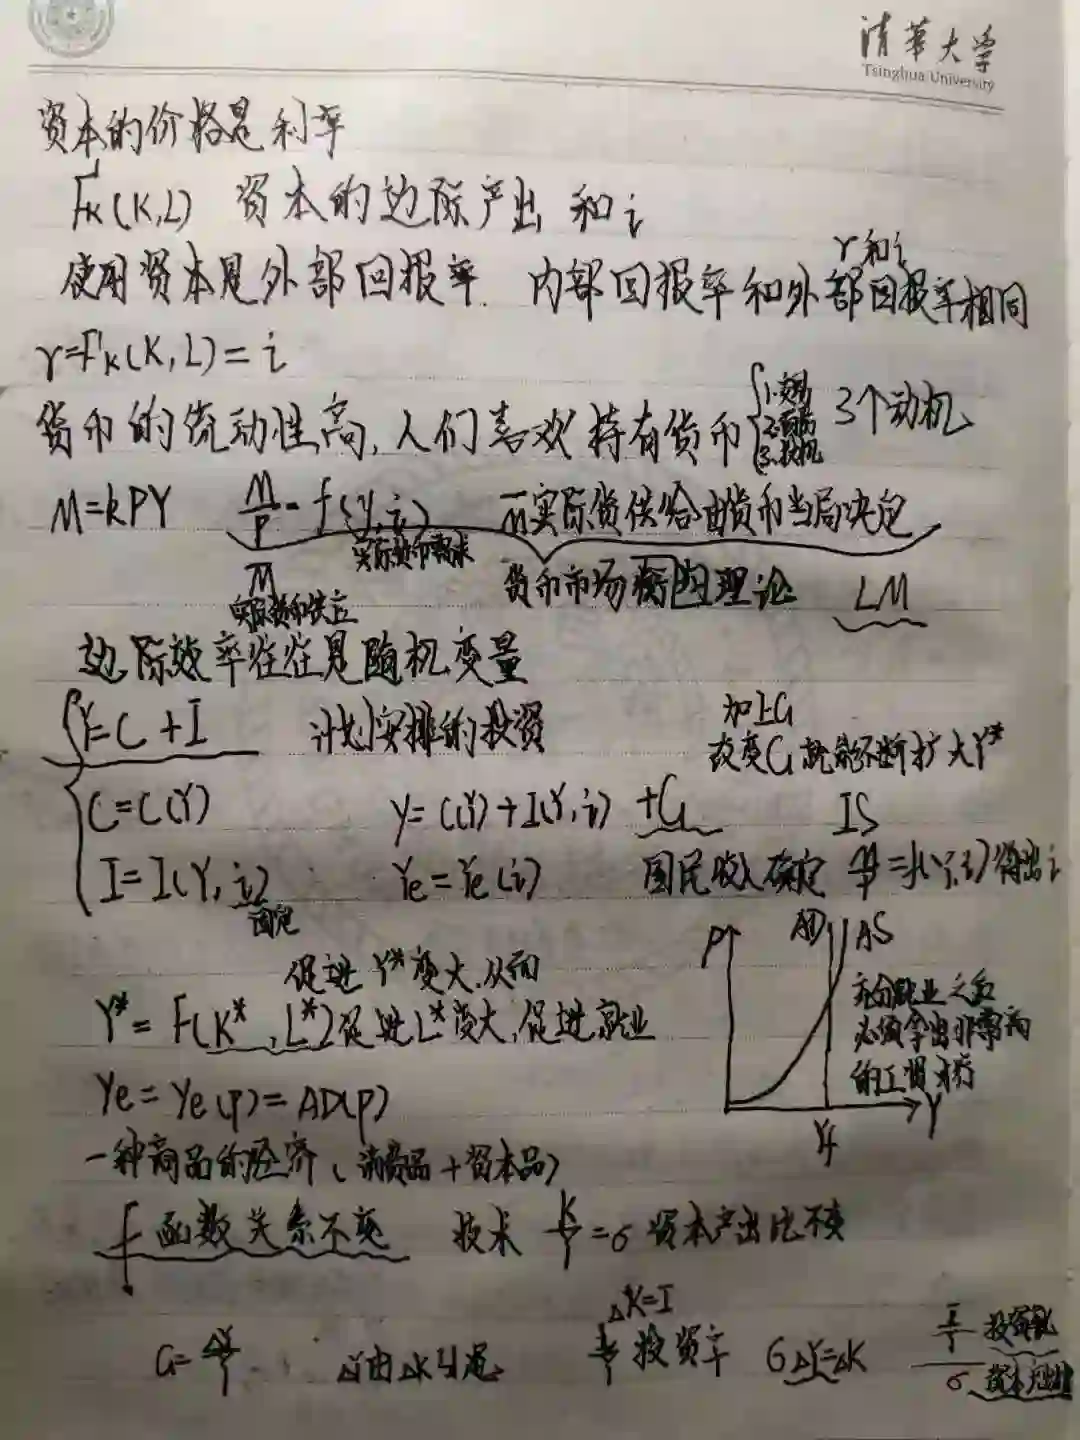 清华大学
Tsinghua University
资本的价格是利率
F_K(K,L) 资本的边际产出 和i
r和i
使用资本是外部回报率. 内部回报率和外部回报率相同
r=F_K(K,L)=i
货币的流动性高,人们喜欢持有货币 {1.交易 3个动机
3.投机
M=kPY M/P=f(Y,i) M̄实际货供给由货币当局决定
实际货币需求
M̄ 货币市场衡均理论 LM
实际货币供应
边际效率往往是随机变量
Y=C+I 计划安排的投资
加上G
改变G就能不断扩大Y*
C=C(Y) Y=C(Y)+I(Y,i) +G IS
I=I(Y,i) Ye=Ye(i) 国民收入确定 得出i
固定
促进Y*变大,从而
Y*=F(K*,L*)促进L*变大,促进就业
P AD AS
充分就业之后
必须拿出非常高
的工资才行
Y
Yf
Ye=Ye(p)=AD(p)
一种商品的经济(消费品+资本品)
f 函数关系不变 技术 K/Y=σ 资本产出比不变
ΔK=I
G=ΔY/Y ΔY由ΔK引起 投资率 σΔY=ΔK
I/Y
σ